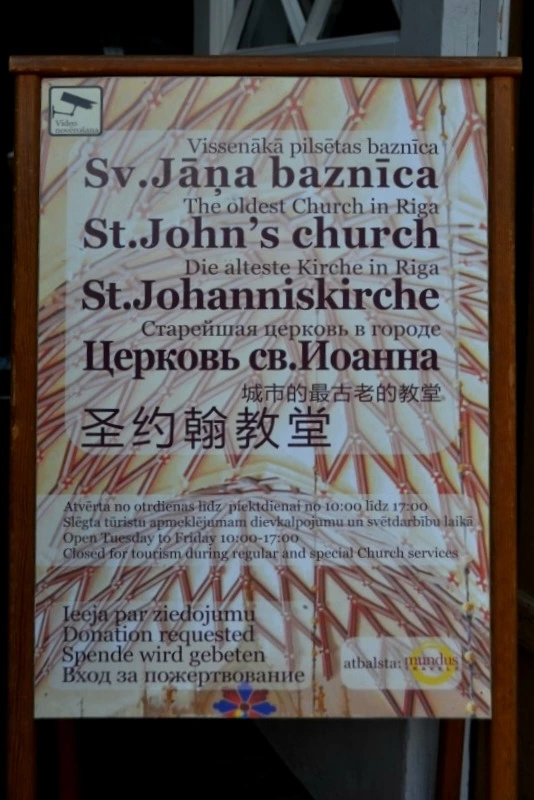 Video
novērošana
Vissenākā pilsētas baznīca
Sv.Jāņa baznīca
The oldest Church in Riga
St.John's church
Die alteste Kirche in Riga
St.Johanniskirche
Старейшая церковь в городе
Церковь св.Иоанна
城市的最古老的教堂
圣约翰教堂
Atvērta no otrdienas līdz piektdienai no 10:00 līdz 17:00
Slēgta tūristu apmeklējumam dievkalpojumu un svētdarbību laikā
Open Tuesday to Friday 10:00-17:00
Closed for tourism during regular and special Church services
Ieeja par ziedojumu
Donation requested
Spende wird gebeten
Вход за пожертвование
atbalsta: mundus
TRAVELS